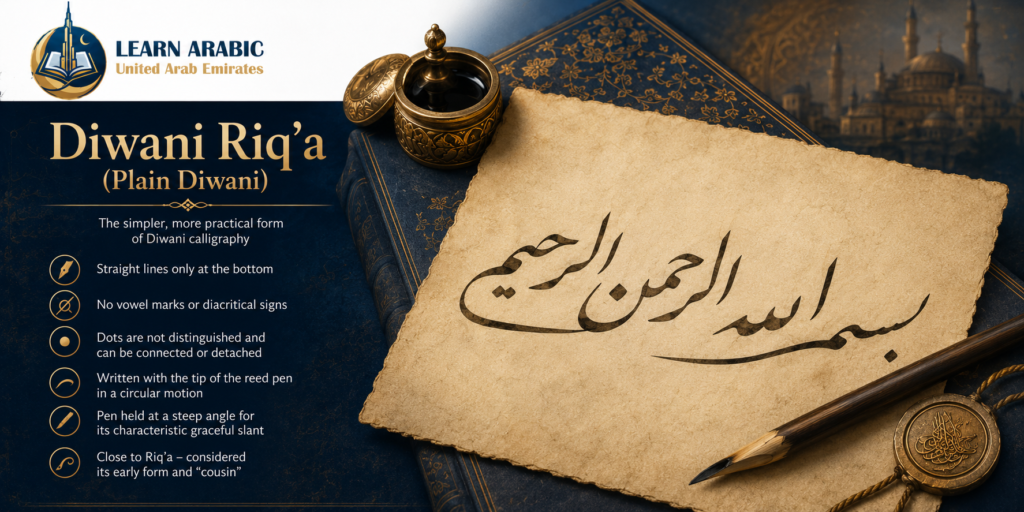 LEARN ARABIC
United Arab Emirates
Diwani Riq'a
(Plain Diwani)
The simpler, more practical form
of Diwani calligraphy
Straight lines only at the bottom
No vowel marks or diacritical signs
Dots are not distinguished and
can be connected or detached
Written with the tip of the reed pen
in a circular motion
Pen held at a steep angle for
its characteristic graceful slant
Close to Riq'a – considered
its early form and “cousin”
بسم الله الرحمن الرحيم